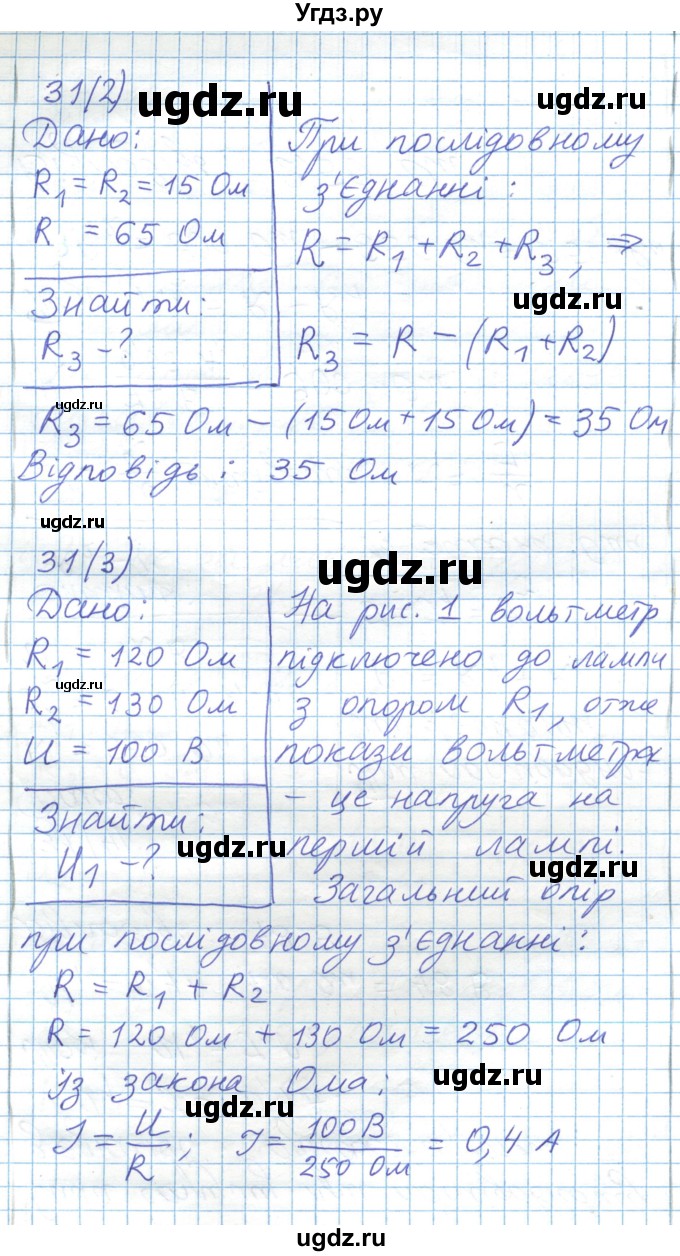 Угдз.ру
31(2)
ugdz.ru
ugdz.ru
Дано:
При послідовному
R1 = R2 = 15 Ом
з'єднанні :
R = 65 Ом
R = R1 + R2 + R3, ⇒
ugdz.ru
Знайти:
R3 - ?
R3 = R - (R1 + R2)
ugdz.ru
R3 = 65 Ом - (15 Ом + 15 Ом) = 35 Ом
Відповідь : 35 Ом
ugdz.ru
31(3)
ugdz.ru
Дано:
На рис. 1 вольтметр
R1 = 120 Ом
підключено до лампи
ugdz.ru
R2 = 130 Ом
з опором R1, отже
U = 100 В
покази вольтметра
- це напруга на
Знайти:
ugdz.ru
першій лампі.
ugdz.ru
U1 - ?
Загальний опір
при послідовному з'єднанні :
R = R1 + R2
R = 120 Ом + 130 Ом = 250 Ом
із закона Ома:
ugdz.ru
ugdz.ru
I = U/R ; I = 100 В/250 Ом = 0,4 А
ugdz.ru